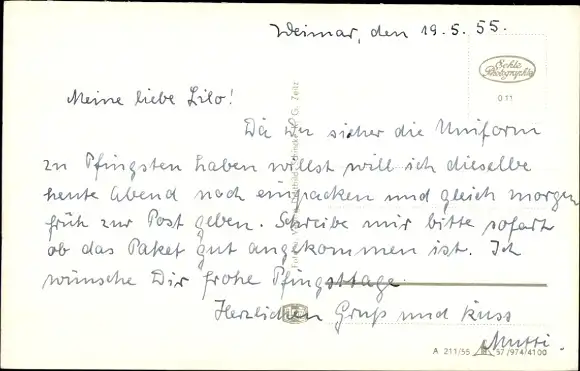 Weimar, den 19.5.55.
Echte
Photographie
0 11
Meine liebe Lilo!
Da Du sicher die Uniform
zu Pfingsten haben willst will ich dieselbe
heute Abend noch einpacken und gleich morgen
früh zur Post geben. Schreibe mir bitte sofort
ob das Paket gut angekommen ist. Ich
wünsche Dir frohe Pfingsttage.
Herzlichen Gruß und Kuss
Mutti.
A 211/55 57/974/4100
G. Zeitz